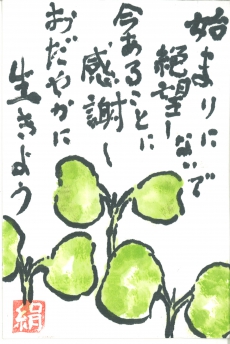 始まりに
絶望しないで
今あることに
感謝し
おだやかに
生きよう
絹